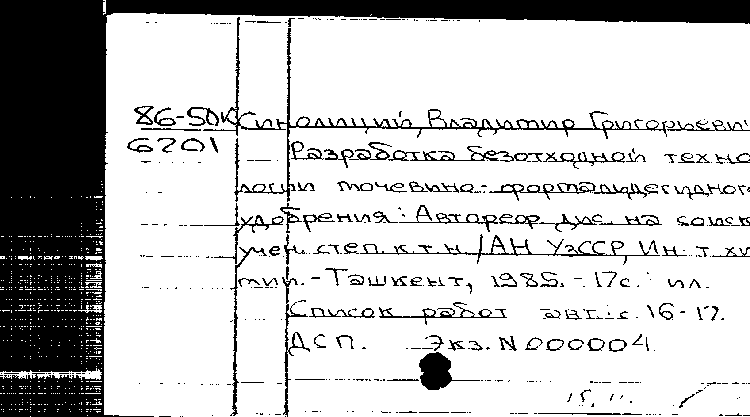 86-5ДК Синолиций, Владимир Григорьевич
6201 Разработка безотходной техно
логии мочевино-формальдегидного
удобрения: Автореф. дис. на соиск.
учен. степ. к.т.н. / АН УзССР, Ин-т хи
мии. - Ташкент, 1985. - 17с.: ил.
Список работ авт.: с. 16-17.
ДСП. Экз. N 000004
15.11.